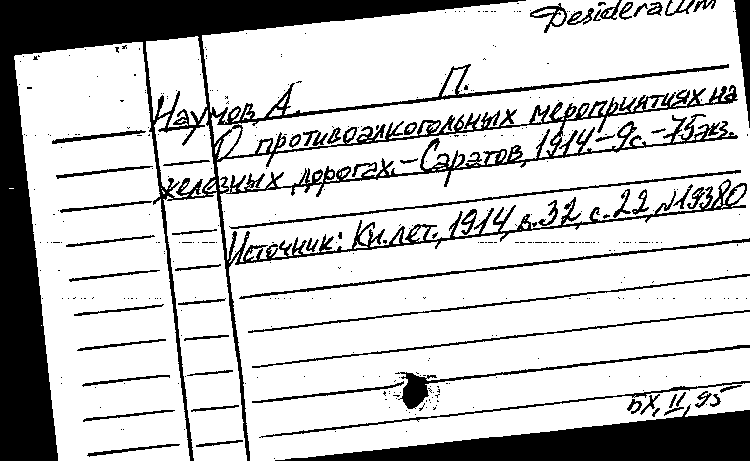 Desideratum
П.
Наумов А.
О противоалкогольных мероприятиях на
железных дорогах.-Саратов, 1914.-9с.-75экз.
Источник: Кн.лет., 1914, в.32, с.22, №19380
БХ, II, 95